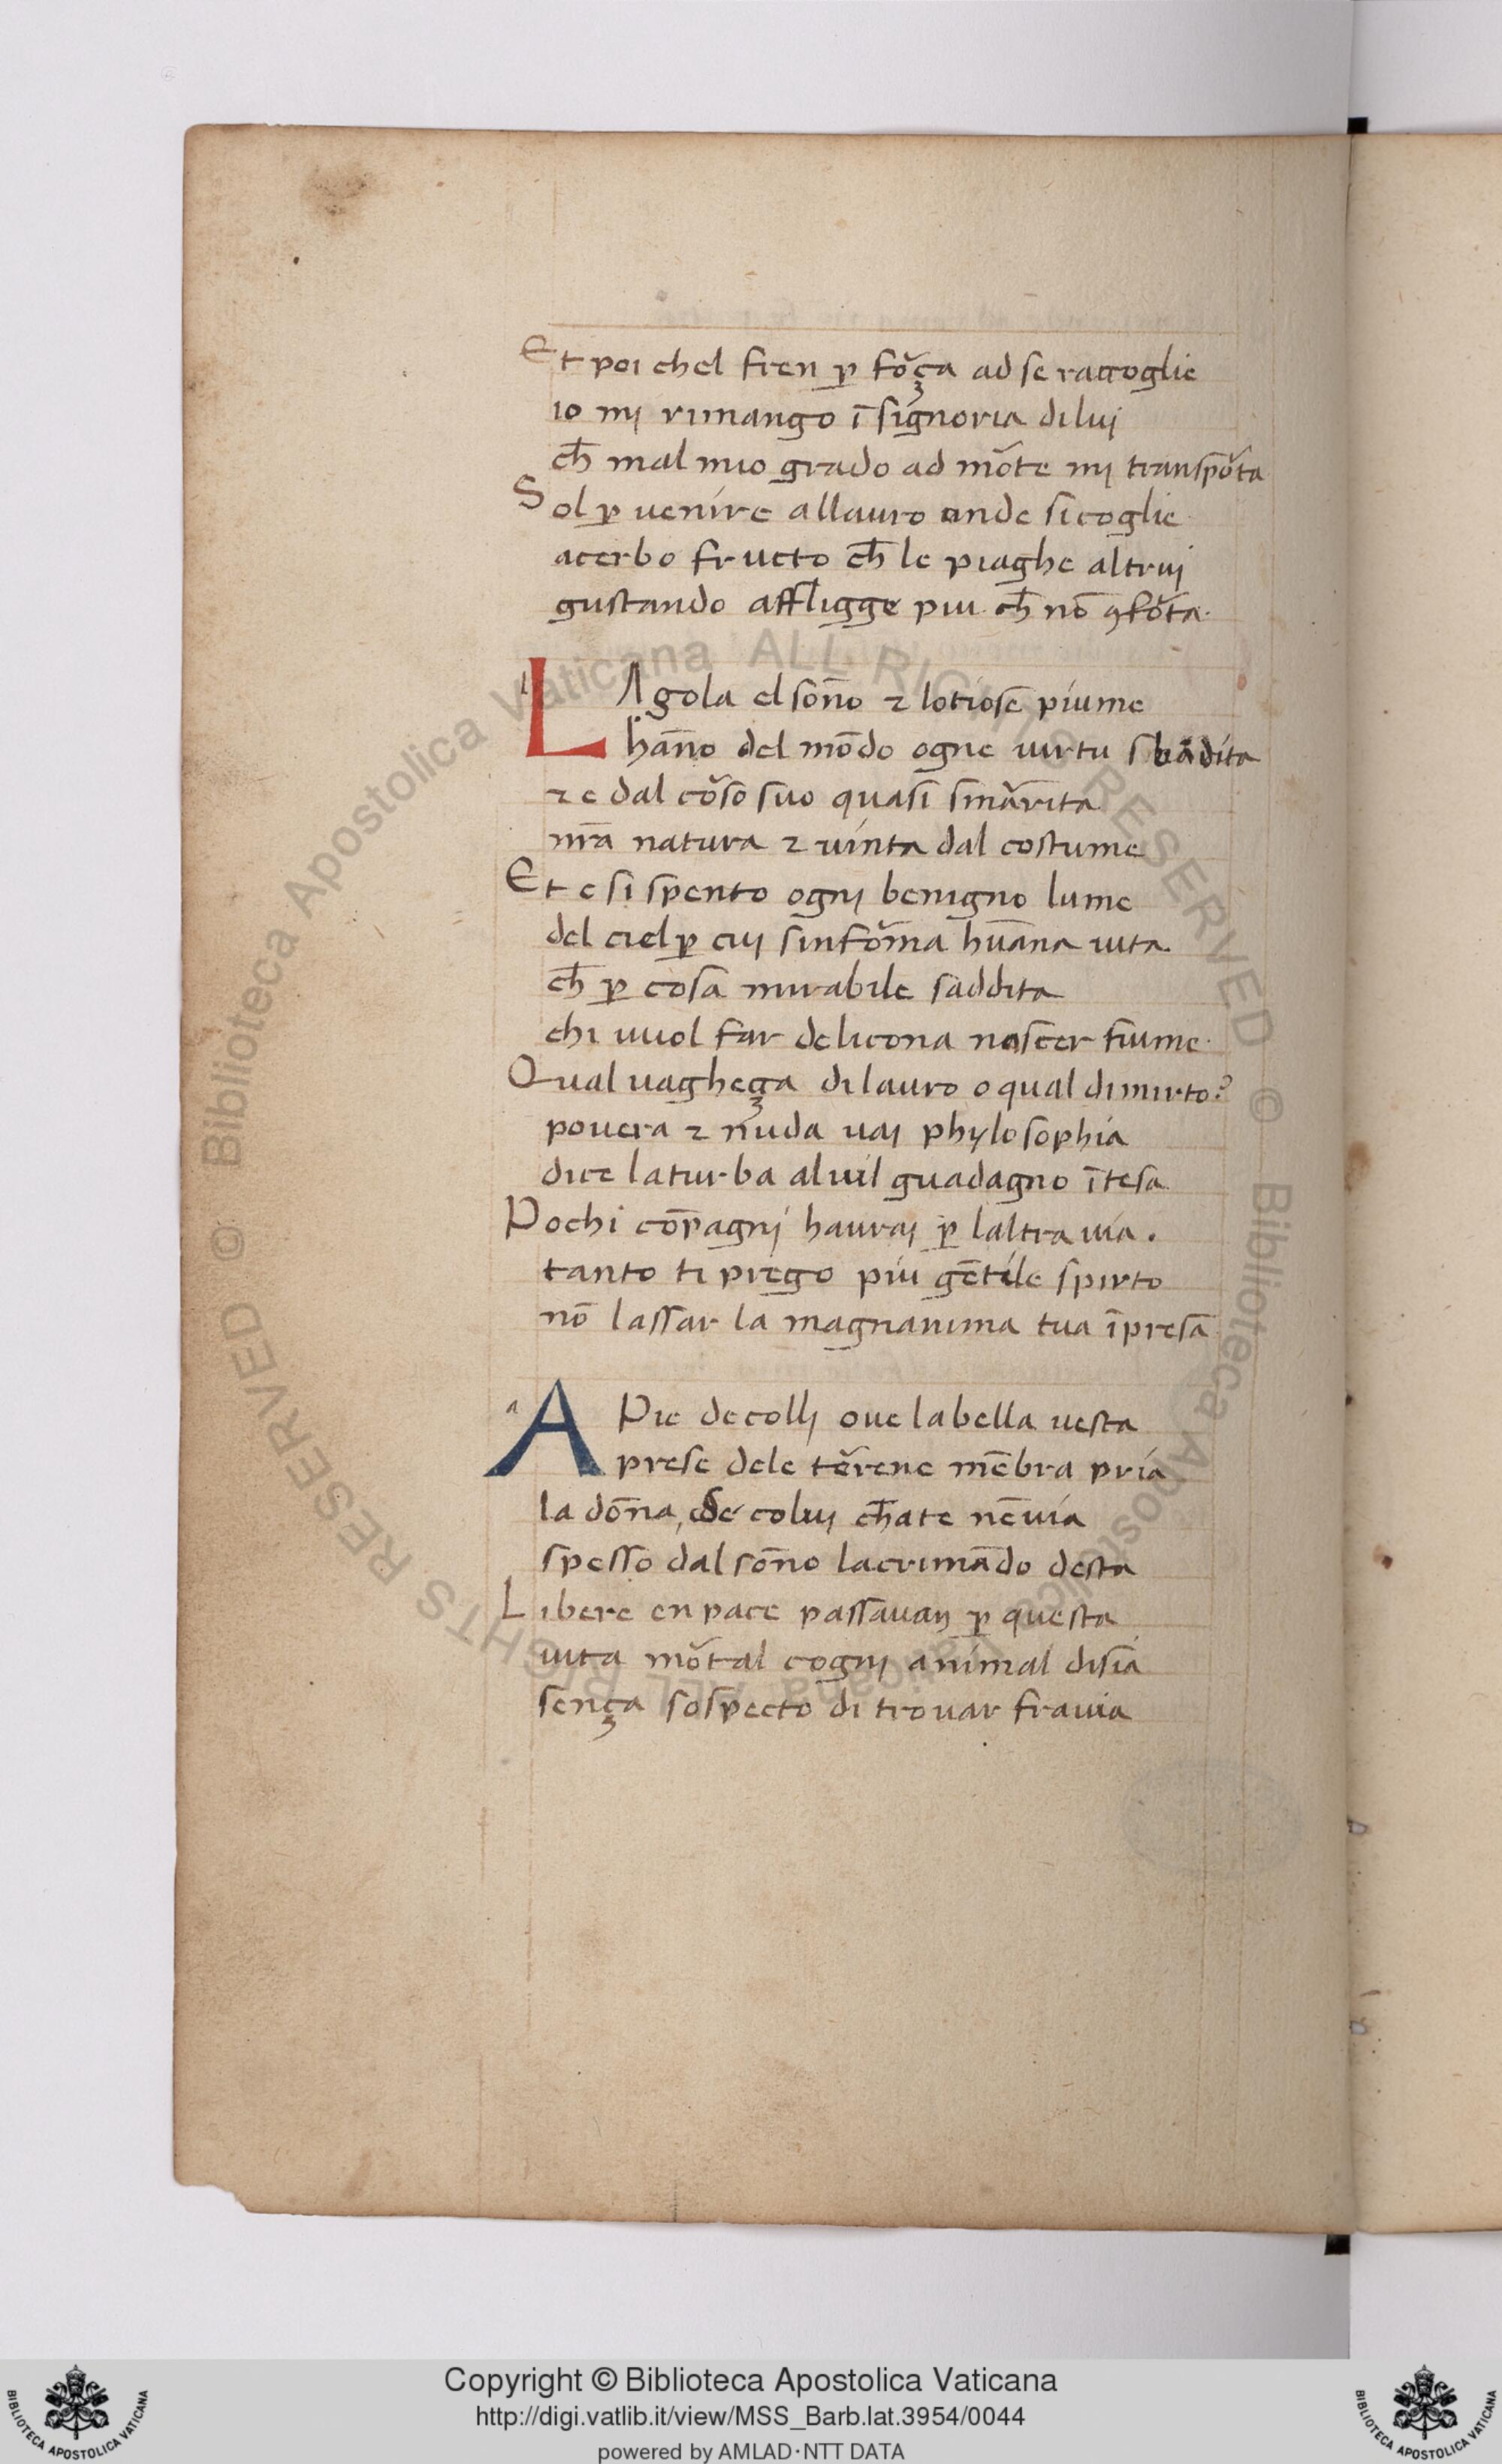 Et poi chel fren ꝑ fo᷑ça ad se raccoglie
io mj rimango ī signoria diluj
ch̄ mal mio grado ad mōte mj transpo᷑ta
Sol ꝑ uenire allauro onde sicoglie
acerbo fructo ch̄ le piaghe altruj
gustando affligge piu ch̄ nō ꝯfo᷑ta.
l
LA gola el son̄o ⁊ lotiose piume
han̄o del mōdo ogne uirtu sbādita
⁊ e dal co᷑so suo quasi sma᷑rita
nr̄a natura ⁊ uinta dal costume
Et e si spento ognj benigno lume
del ciel ꝑ cuj sinfo᷑ma hūana uita.
ch̄ ꝑ cosa mirabile saddita
chi uuol far delicona nascer fiume.
Qual uagheça dilauro o qual dimirto?
pouera ⁊ nuda uaj phylosophia
dice laturba aluil guadagno ītesa
Pochi cōpagnj hauraj ꝑ laltra uia.
tanto ti priego piu gētile spirto
nō lassar la magnanima tua īpresa
a
A Pie decollj oue labella uesta
prese dele te᷑rene mēbra pria
la don̄a, de coluj ch̄ate nēuia
spesso dal son̄o lacrimādo desta
Libere en pace passauan ꝑ questa
uita mo᷑tal cognj animal disia
sença sospecto di trouar frauia
Copyright © Biblioteca Apostolica Vaticana
http://digi.vatlib.it/view/MSS_Barb.lat.3954/0044
powered by AMLAD·NTT DATA
BIBLIOTECA APOSTOLICA VATICANA
BIBLIOTECA APOSTOLICA VATICANA
© Biblioteca Apostolica Vaticana ALL RIGHTS RESERVED © Biblioteca Apostolica Vaticana ALL RIGHTS RESERVED